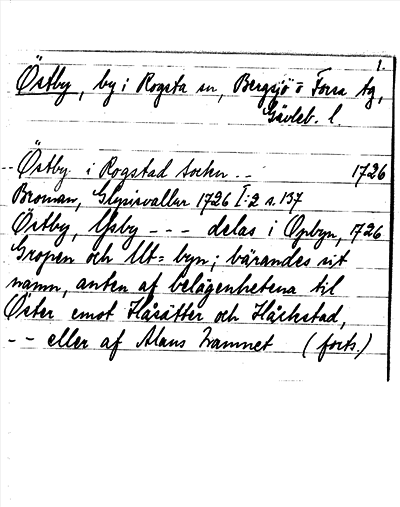 1.
Östby, by i Rogsta sn, Bergsjö o Forsa tg,
Gävleb. l.
-- Östby i Rogstad Socken -- 1726
Broman, Glysisvallur 1726 I:2 s. 137
Östby, Ysby --- delas i Opbyn, 1726
Gropen och Ut=byn; bärandes sit
namn, anten af belägenhetena til
Öster emot Håsätter och Håckstad,
-- eller af Alans namnet (forts.)